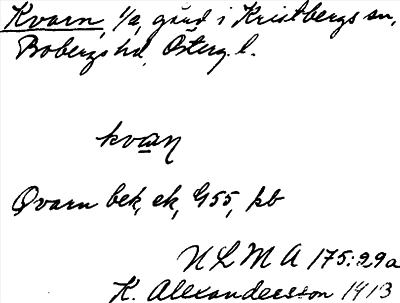 Kvarn, 1/2, gård i Kristbergs sn,
Bobergs hd, Österg. l.
kvaɳ
Qvarn bek, ek, G55, kb
NLMA 175:29a
K. Alexandersson 1913